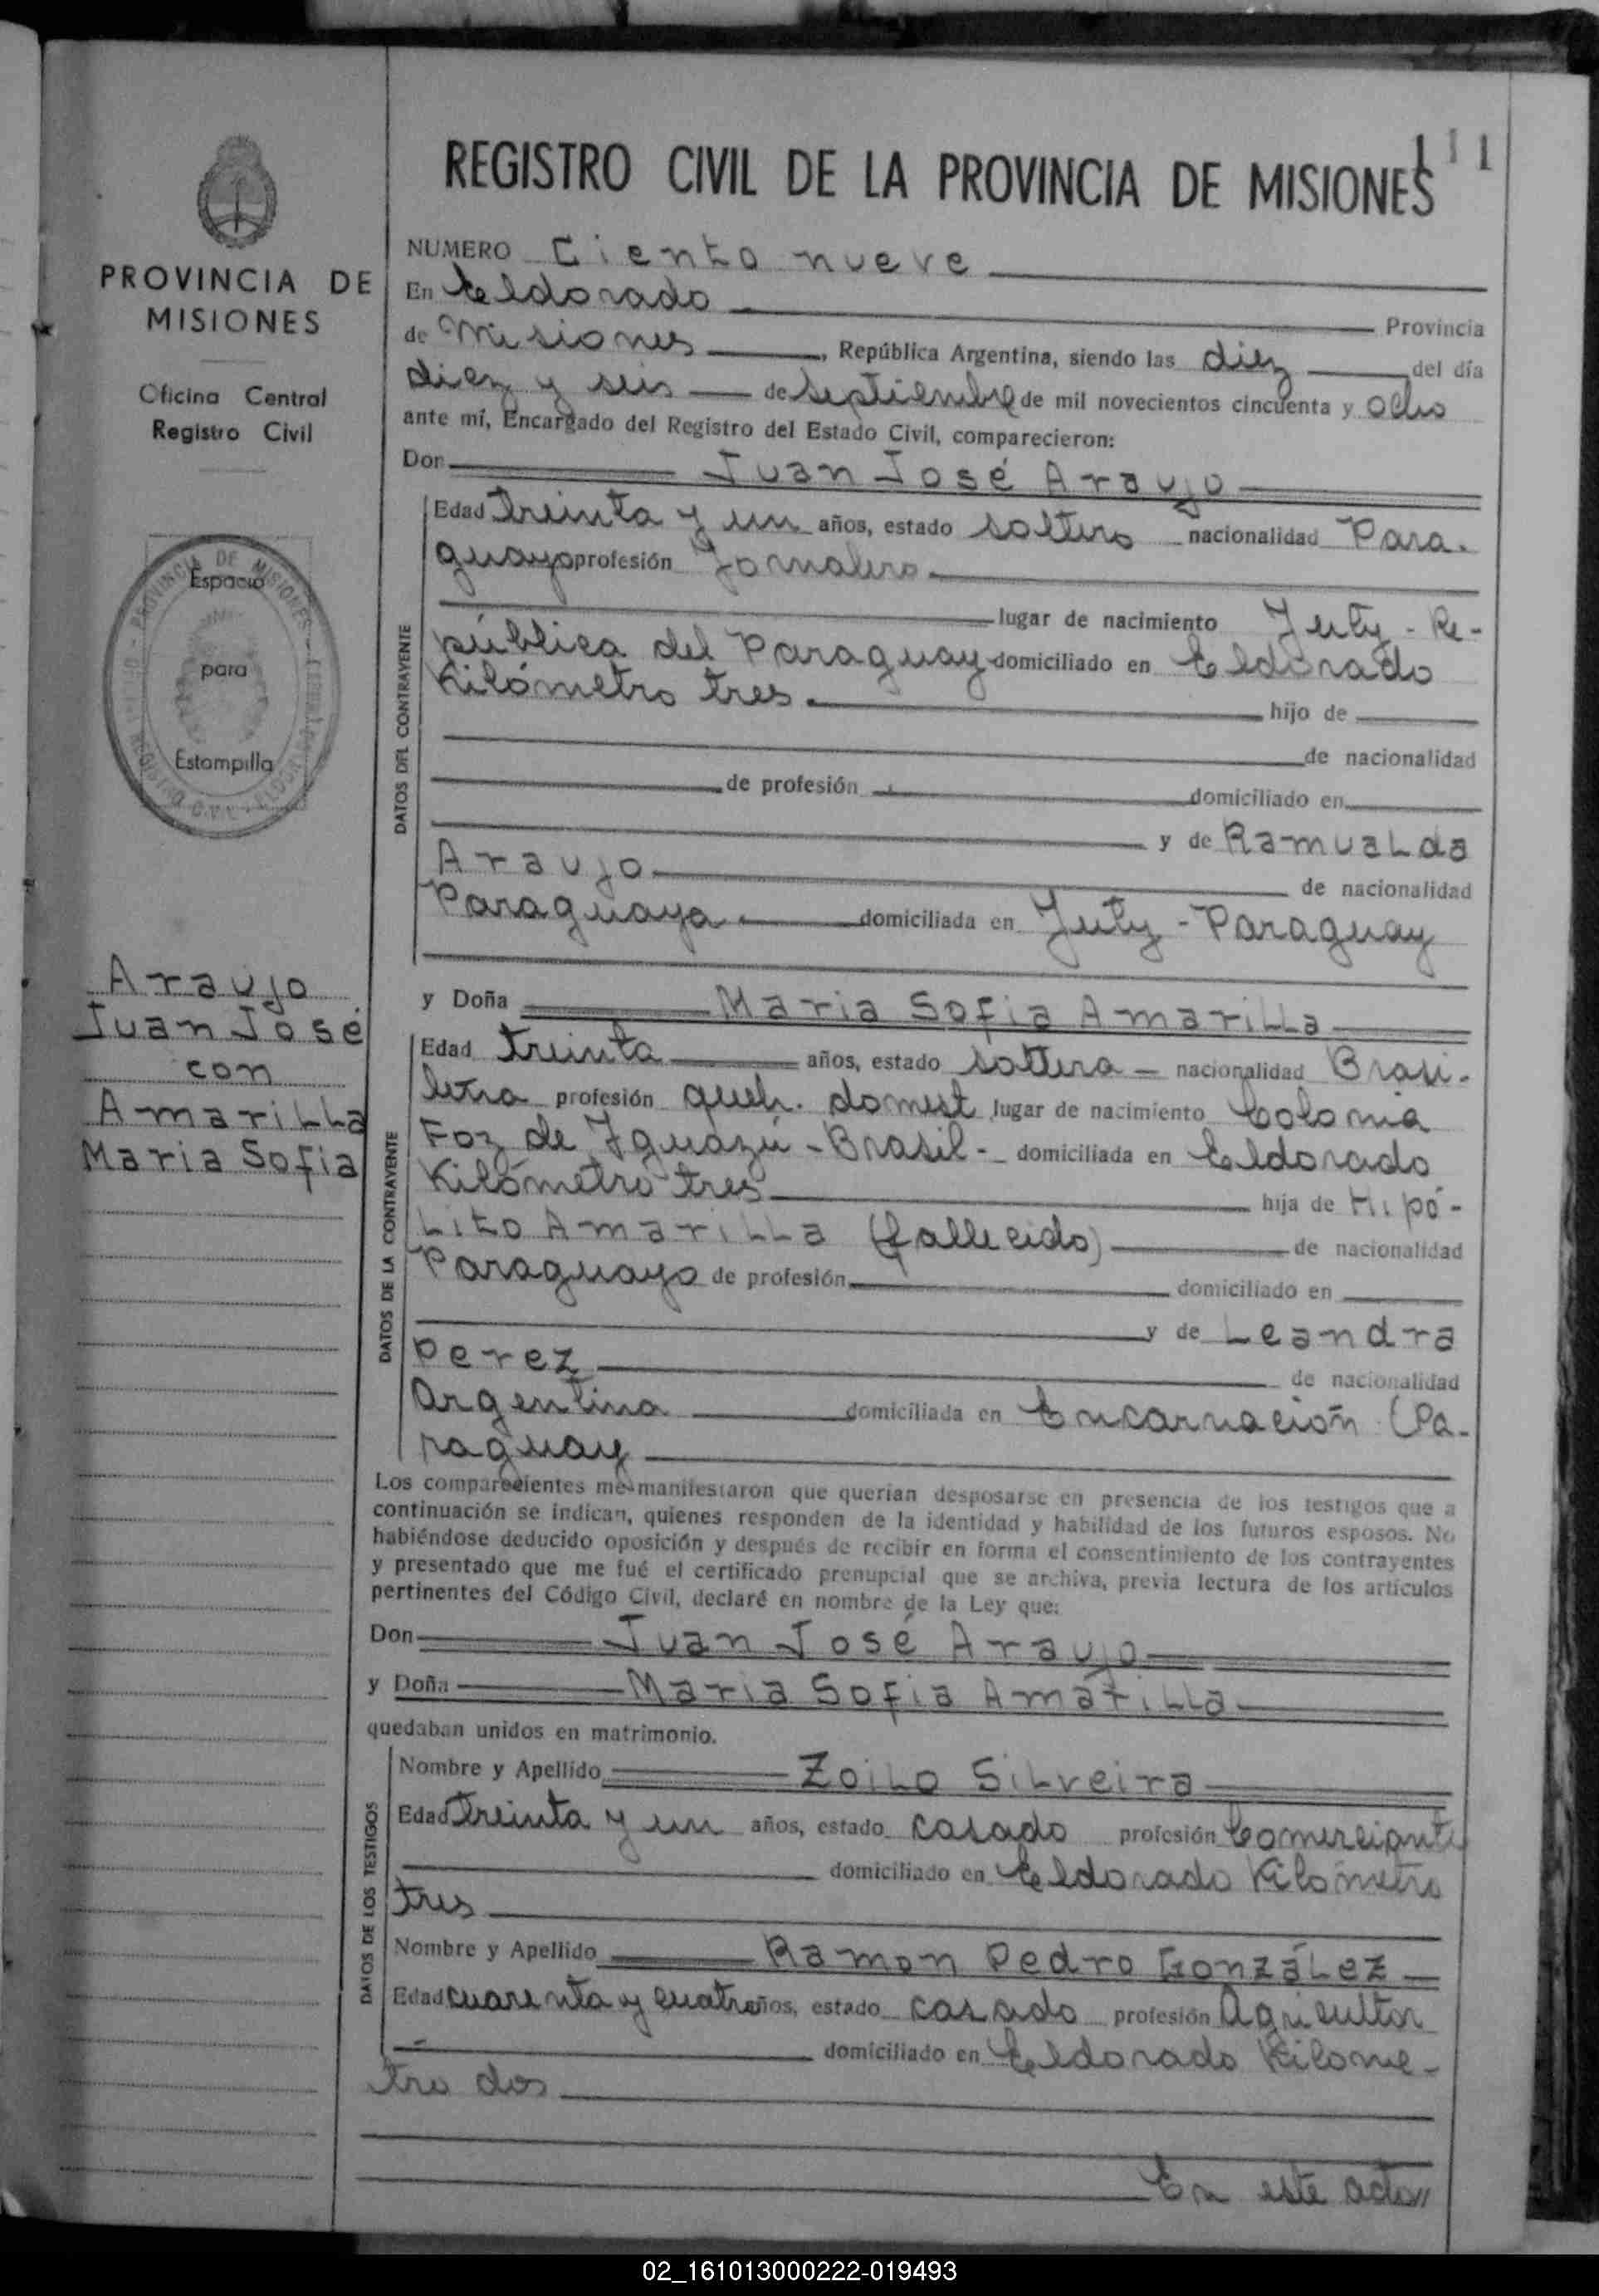 111
REGISTRO CIVIL DE LA PROVINCIA DE MISIONES
PROVINCIA DE
MISIONES
Oficina Central
Registro Civil
Espacio
para
Estampilla
Araujo
Juan José
con
Amarilla
Maria Sofia
NUMERO Ciento nueve
En Eldorado Provincia
de Misiones, República Argentina, siendo las diez del día
diez y seis de Septiembre de mil novecientos cincuenta y ocho
ante mí, Encargado del Registro del Estado Civil, comparecieron:
Don Juan José Araujo
DATOS DEL CONTRAYENTE
Edad treinta y un años, estado soltero nacionalidad Para-
guayo profesión Jornalero
lugar de nacimiento Yuty - Re-
pública del Paraguay domiciliado en Eldorado
Kilómetro tres hijo de
de nacionalidad
de profesión domiciliado en
y de Ramualda
Araujo de nacionalidad
Paraguaya domiciliada en Yuty - Paraguay
y Doña Maria Sofia Amarilla
DATOS DE LA CONTRAYENTE
Edad treinta años, estado soltera nacionalidad Brasi-
leña profesión queh. domest lugar de nacimiento Colonia
Foz de Iguazú - Brasil - domiciliada en Eldorado
Kilómetro tres hija de Hipó-
Lito Amarilla (fallecido) de nacionalidad
Paraguayo de profesión domiciliado en
y de Leandra
Perez de nacionalidad
Argentina domiciliada en Encarnación (Pa-
raguay
Los comparecientes me manifestaron que querían desposarse en presencia de los testigos que a
continuación se indican, quienes responden de la identidad y habilidad de los futuros esposos. No
habiéndose deducido oposición y después de recibir en forma el consentimiento de los contrayentes
y presentado que me fué el certificado prenupcial que se archiva, previa lectura de los artículos
pertinentes del Código Civil, declaré en nombre de la Ley que:
Don Juan José Araujo
y Doña Maria Sofia Amarilla
quedaban unidos en matrimonio.
DATOS DE LOS TESTIGOS
Nombre y Apellido Zoilo Silveira
Edad treinta y un años, estado casado profesión Comerciante
domiciliado en Eldorado Kilómetro
tres
Nombre y Apellido Ramon Pedro González
Edad cuarenta y cuatro años, estado casado profesión Agricultor
domiciliado en Eldorado Kilome-
tro dos
En este acto//
02_161013000222-019493